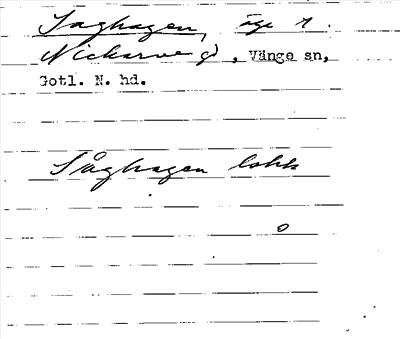 Saghagen, äga 1.
Nickarve gd, Vänge sn,
Gotl. N. hd.
Såghagen lokk